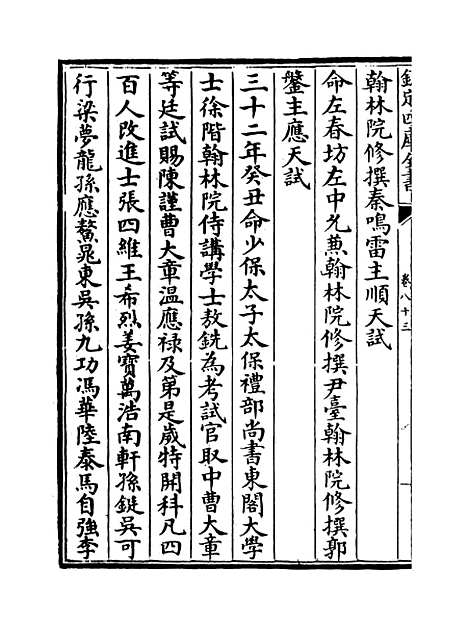 欽定四庫全書
卷八十三
翰林院修撰秦鳴雷主順天試
命左春坊左中允兼翰林院修撰尹臺翰林院修撰郭
鎜主應天試
三十二年癸丑命少保太子太保禮部尚書東閣大學
士徐階翰林院侍講學士敖銑為考試官取中曹大章
等廷試賜陳謹曹大章温應禄及第是歲特開科凡四
百人改進士張四維王希烈姜寶萬浩南軒孫鋌吳可
行梁夢龍孫應鰲晁東吳孫九功馮華陸泰馬自強李